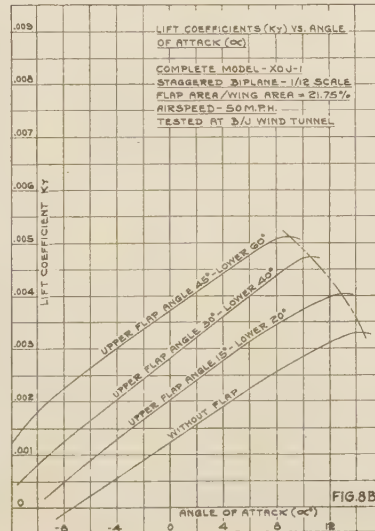 LIFT COEFFICIENTS (KY) VS. ANGLE
OF ATTACK (∝)
COMPLETE MODEL - XOJ-1
STAGGERED BIPLANE - 1/12 SCALE
FLAP AREA/WING AREA = 21.75%
AIRSPEED - 50 M.P.H.
TESTED AT B/J WIND TUNNEL
.009
.008
.007
.006
.005
.004
.003
.002
.001
0
LIFT COEFFICIENT KY
UPPER FLAP ANGLE 45° - LOWER 60°
UPPER FLAP ANGLE 30° - LOWER 40°
UPPER FLAP ANGLE 15° - LOWER 20°
WITHOUT FLAP
-8 -4 0 4 8 12
ANGLE OF ATTACK (∝°)
FIG.8B